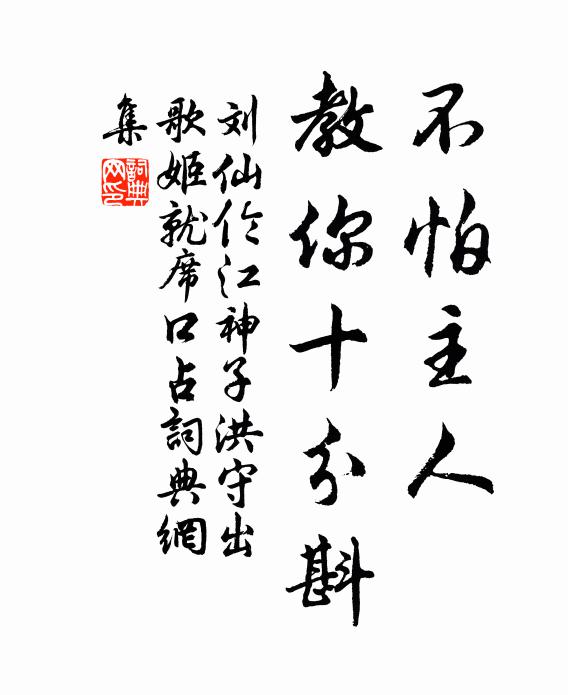 不怕主人
教你十分斟
刘仙伦江神子洪守出
歌姬就席口占詞典網
集
詞典
网印